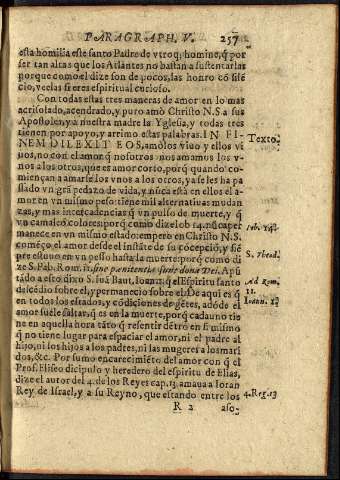 PARAGRAPH. V. 257
esta homilia este santo Padre de vtroq; homine, q̃ por
ser tan altas que los Atlantes no bastan a sustentarlas
porque como el dize son de pocos, las honro cõ silẽ
cio, veelas si eres espiritual curioso.
Con todas estas tres maneras de amor en lo mas
acrisolado, acendrado, y puro amò Christo N.S a sus
Apostoles, y a nuestra madre la Yglesia, y todas tres
tienen por apoyo, y arrimo estas palabras. IN FI-
NEM DILEXIT EOS, amòlos viuo y ellos vi
Texto.
uos, no con el amor q̃ nosotros nos amamos los v-
nos a los otros, que es amor corto, porq̃ quando co-
miençan a amarse los vnos a los otros, ya se les ha pa
ssado vn grã pedazo de vida, y nũca està en ellos el a-
mor en vn mismo peso: tiene mil alternatiuas mudan
zas, y mas intercadencias q̃ vn pulso de muerte, y q̃
vn camaleõ colores: porq̃ como dize Iob 14. nũca per
Iob. 14.
manece en vn mismo estado: empero en Christo N.S.
començo el amor desde el instãte de su cõcepciõ, y siẽ
pre estuuo en vn pesso hasta la muerte: porq̃ como di
S. Thead.
ze S. Pab. Rom. 11. sine pænitentia sunt dona Dei. Apũ
tádo a esto dixo S. Iuã Baut, Ioan. 1. q̃ el Espiritu santo
Ad Rom.
11.
descẽdio sobre el, y permanecio sobre el. De aqui es q̃
Ioan. 1.
en todos los estados, y cõdiciones de gẽtes, adõde el
amor suele faltar, q̃ es en la muerte, porq̃ cada uno tie
ne en aquella hora tãto q̃ resentir dẽtro en si mismo
q̃ no tiene lugar para espaciar el amor, ni el padre al
hijo, ni los hijos a los padres, ni las mugeres a los mari
dos, &c. Por sumo encarecimiẽto del amor con q̃ el
Prof. Eliseo dicipulo y heredero del espiritu de Elias,
dize el autor del 4. de los Reyes cap. 13. amaua a Ioran
Rey de Israel, y a su Reyno, que estando entre los
4. Reg. 13
R 2
aso-